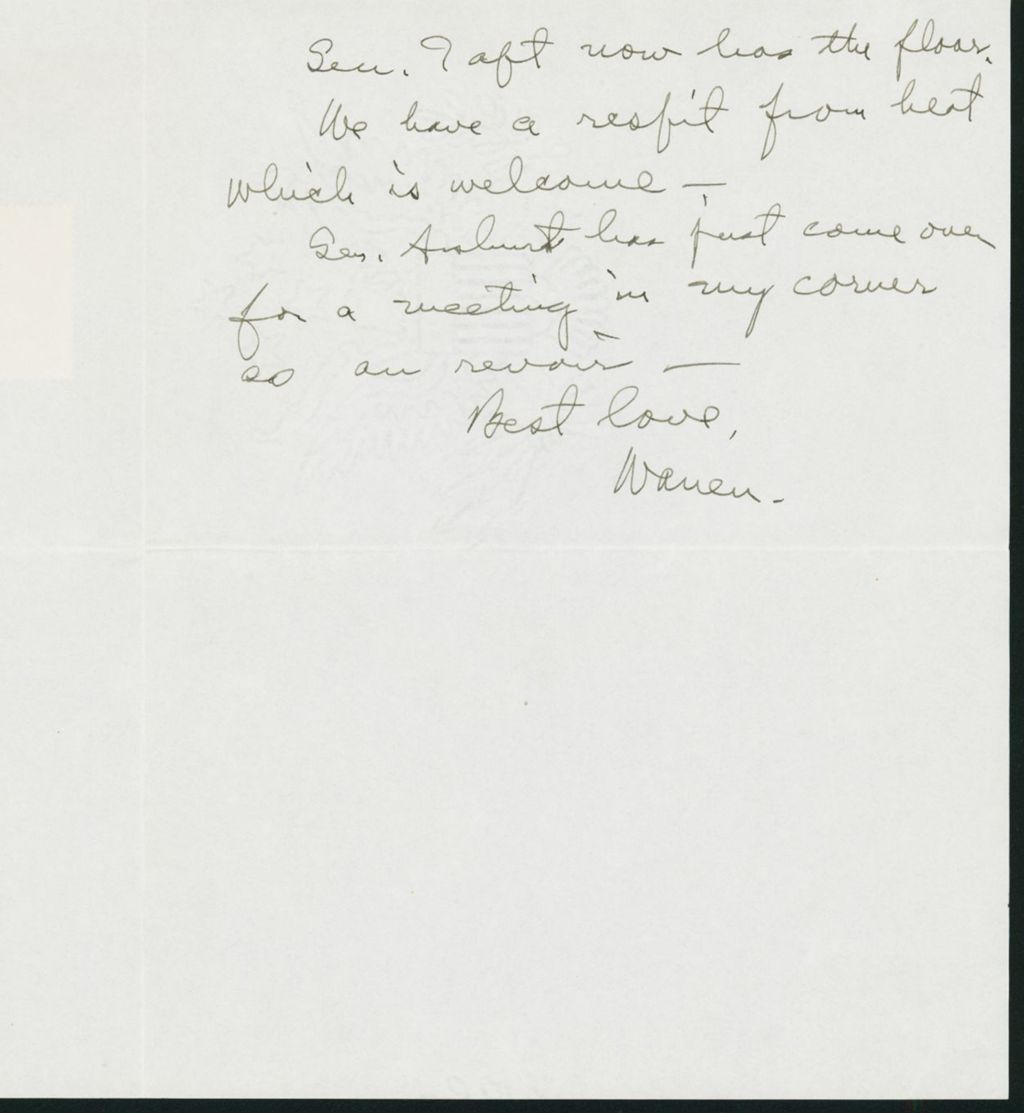 Sen. Taft now has the floor.
We have a respit from heat
which is welcome —
Sen. Ashurst has just come over
for a meeting in my corner
so au revoir —
Best love,
Warren.